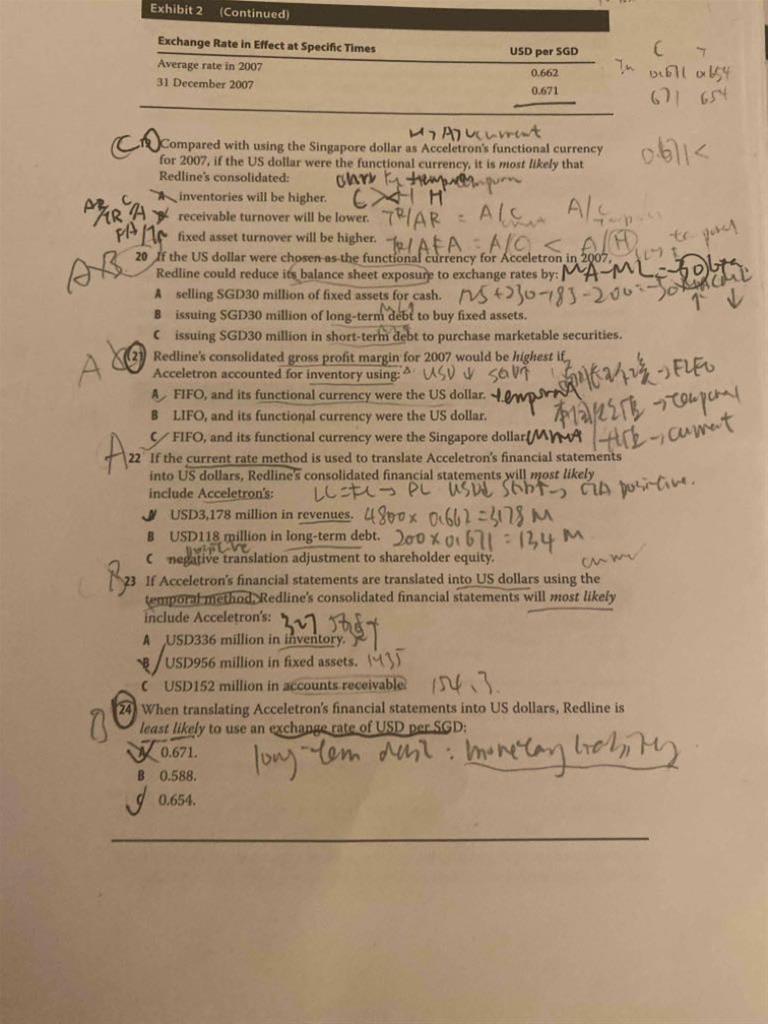 Exhibit 2 (Continued)
Exchange Rate in Effect at Specific Times USD per SGD
Average rate in 2007 0.662
31 December 2007 0.671
C T
0.671 0.654
671 654
0.671 <
Compared with using the Singapore dollar as Acceletron's functional currency
for 2007, if the US dollar were the functional currency, it is most likely that
Redline's consolidated:
A inventories will be higher.
receivable turnover will be lower. TR/AR = A/C
fixed asset turnover will be higher. TR/AFA = A/C < A/H
AB 20 If the US dollar were chosen as the functional currency for Acceletron in 2007,
Redline could reduce its balance sheet exposure to exchange rates by: MA-ML=-50
A selling SGD30 million of fixed assets for cash. 125+230-185-200=-50
B issuing SGD30 million of long-term debt to buy fixed assets.
C issuing SGD30 million in short-term debt to purchase marketable securities.
A 21 Redline's consolidated gross profit margin for 2007 would be highest if
Acceletron accounted for inventory using: USD ↓ SGD↑ → FIFO
A FIFO, and its functional currency were the US dollar. temporal
B LIFO, and its functional currency were the US dollar. → temporal
C FIFO, and its functional currency were the Singapore dollar. → current
A 22 If the current rate method is used to translate Acceletron's financial statements
into US dollars, Redline's consolidated financial statements will most likely
include Acceletron's: USD↓ SGD↑→ CTA positive.
USD3,178 million in revenues. 4800×0.662=3178 M
B USD118 million in long-term debt. 200×0.671=134 M
positive
C negative translation adjustment to shareholder equity.
B 23 If Acceletron's financial statements are translated into US dollars using the
temporal method, Redline's consolidated financial statements will most likely
include Acceletron's: 327
A USD336 million in inventory.
B USD956 million in fixed assets. 1435
C USD152 million in accounts receivable. 154.3
B 24 When translating Acceletron's financial statements into US dollars, Redline is
least likely to use an exchange rate of USD per SGD:
A 0.671. long-term debt: monetary liability
B 0.588.
C 0.654.